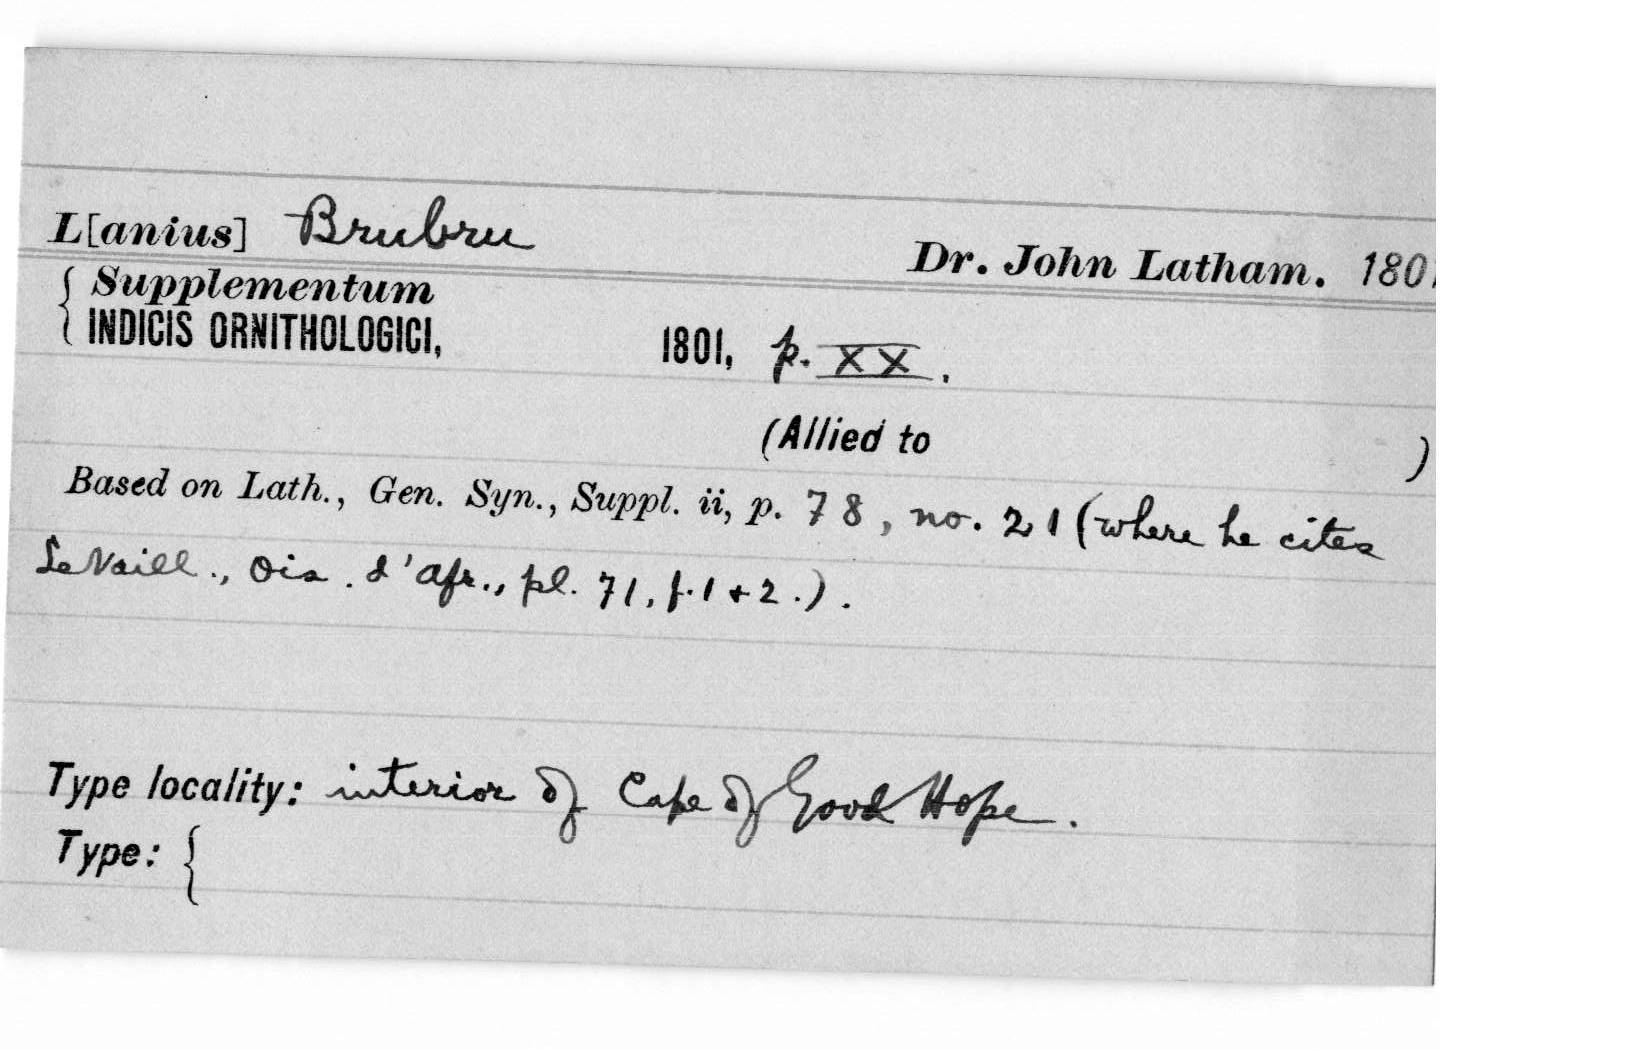 L[anius] Brubru
Dr. John Latham. 1801
{ Supplementum
INDICIS ORNITHOLOGICI, 1801, p. XX.
(Allied to )
Based on Lath., Gen. Syn., Suppl. ii, p. 78, no. 21 (where he cites
Le Vaill., Ois. d'Afr., pl. 71, f. 1 + 2.).
Type locality: interior of Cape of Good Hope.
Type: {